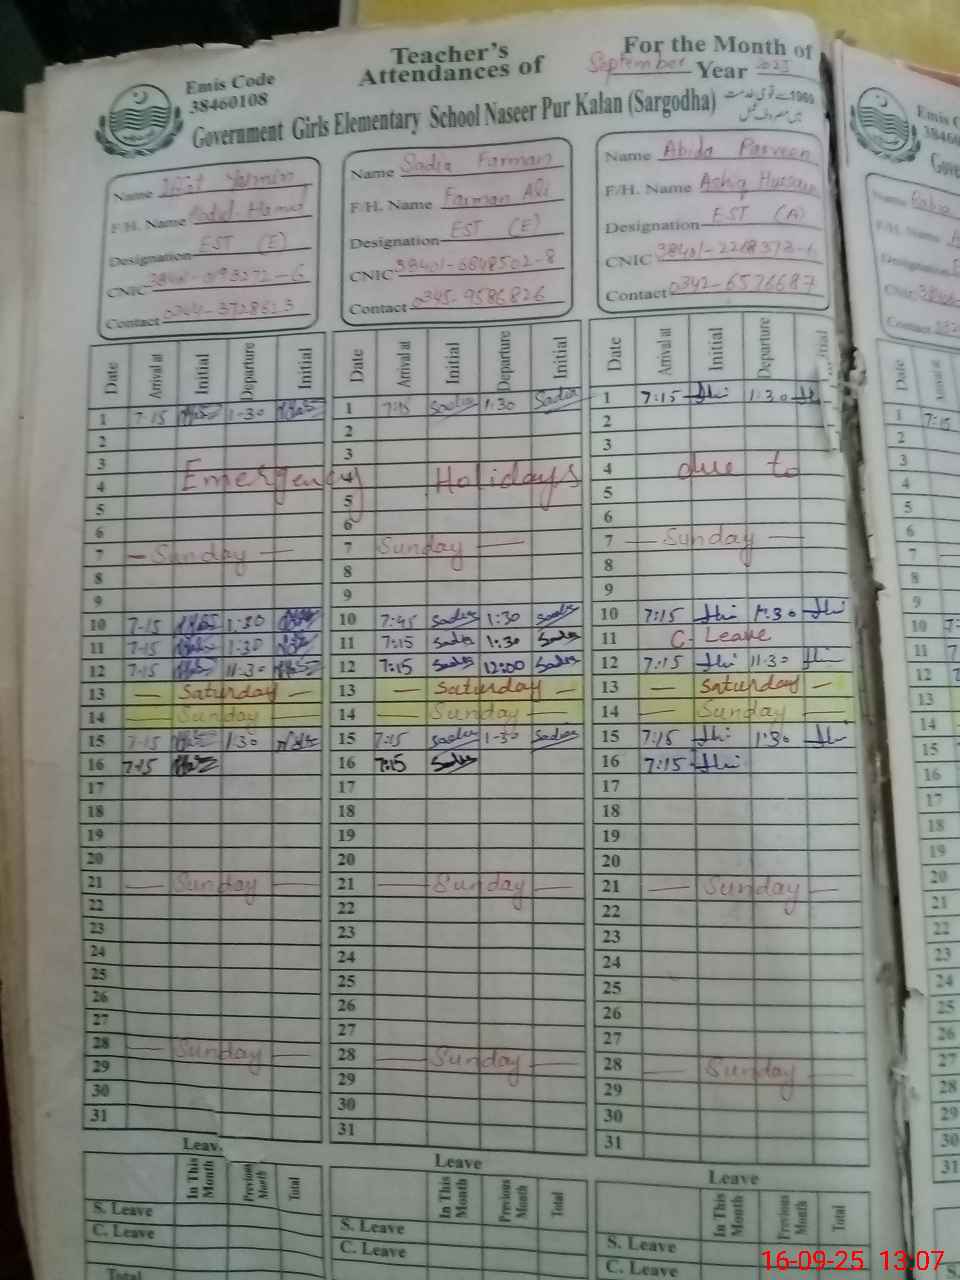 Teacher's
Attendances of
For the Month of
September Year 2025
Emis Code
38460108
Government Girls Elementary School Naseer Pur Kalan (Sargodha)
Name Iffat Yasmin
F/H. Name Abdul Hamid
Designation EST (E)
CNIC
Contact 0344-3728623
Date Arrival at Initial Departure Initial
1 7-15 1-30
2
3
4 Emergency
5
6
7 Sunday
8
9
10 7-15 1-30
11 7-15 1-30
12 7-15 11-30
13 Saturday
14 Sunday
15 7-15 1-30
16 7-15
17
18
19
20
21 Sunday
22
23
24
25
26
27
28 Sunday
29
30
31
Leav
In This Month Previous Month Total
S. Leave
C. Leave
Total
Name Sadia Farman
F/H. Name Farman Ali
Designation EST (E)
CNIC 38401-6848502-8
Contact 0345-9586826
Date Arrival at Initial Departure Initial
1 7:15 Sadia 1:30 Sadia
2
3
4 Holidays
5
6
7 Sunday
8
9
10 7:45 Sadia 1:30 Sadia
11 7:15 Sadia 1:30 Sadia
12 7:15 Sadia 12:00 Sadia
13 Saturday
14 Sunday
15 7:15 Sadia 1-30 Sadia
16 7:15 Sadia
17
18
19
20
21 Sunday
22
23
24
25
26
27
28 Sunday
29
30
31
Leave
In This Month Previous Month Total
S. Leave
C. Leave
Name Abida Parveen
F/H. Name Ashiq Hussain
Designation EST (A)
CNIC
Contact 0342-6576687
Date Arrival at Initial Departure
1 7:15 1:30
2
3
4 due to
5
6
7 Sunday
8
9
10 7:15 1:30
11 C. Leave
12 7:15 11-30
13 Saturday
14 Sunday
15 7:15 1:30
16 7:15
17
18
19
20
21 Sunday
22
23
24
25
26
27
28 Sunday
29
30
31
Leave
In This Month Previous Month Total
S. Leave
C. Leave
Emis C
3846
Gove
Date
1 7:15
2
3
4
5
6
7
8
9
10
11
12
13
14
15
16
17
18
19
20
21
22
23
24
25
26
27
28
29
30
31
16-09-25 13:07